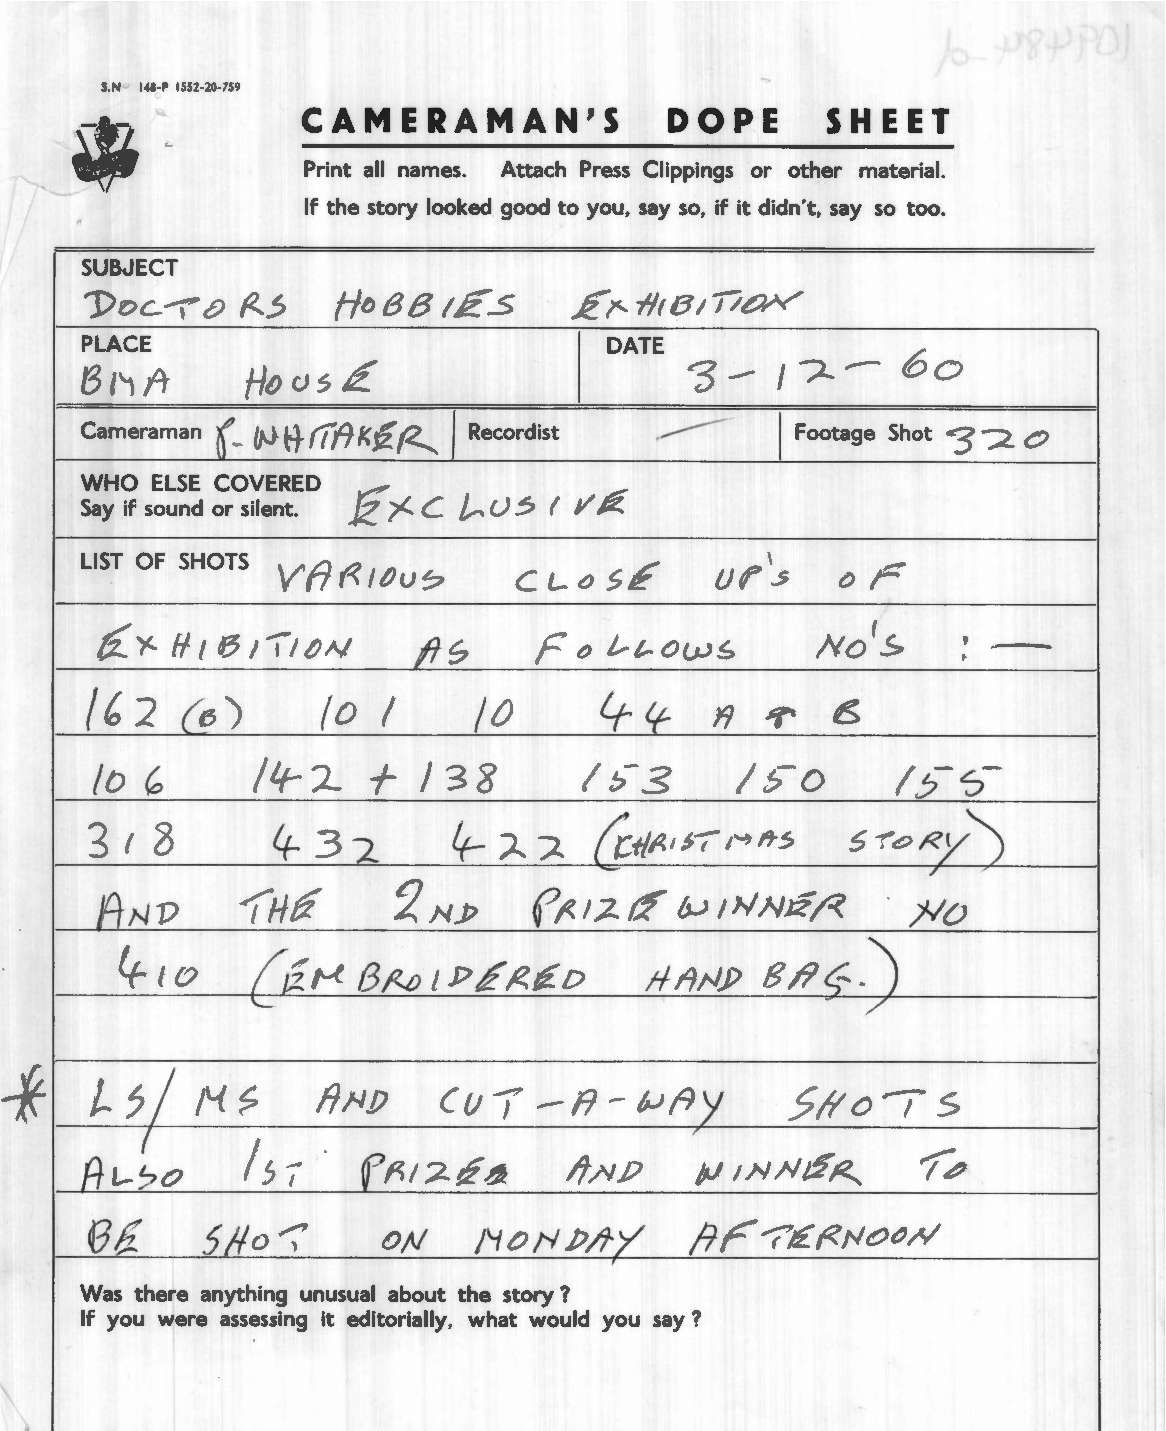 S.N 148-P 1552-20-759
CAMERAMAN'S DOPE SHEET
Print all names. Attach Press Clippings or other material.
If the story looked good to you, say so, if it didn't, say so too.
SUBJECT
DOCTORS HOBBIES EXHIBITION
PLACE
BMA HOUSE
DATE
3-12-60
Cameraman P. WHITTAKER Recordist — Footage Shot 320
WHO ELSE COVERED
Say if sound or silent.
EXCLUSIVE
LIST OF SHOTS VARIOUS CLOSE UP'S OF
EXHIBITION AS FOLLOWS NO'S :—
162 (B) 101 10 44 A + B
106 142 + 138 153 150 155
318 432 422 (CHRISTMAS STORY)
AND THE 2ND PRIZE WINNER NO
410 (EMBROIDERED HAND BAG.)
* LS/MS AND CUT-A-WAY SHOTS
ALSO 1ST PRIZE AND WINNER TO
BE SHOT ON MONDAY AFTERNOON
Was there anything unusual about the story?
If you were assessing it editorially, what would you say?